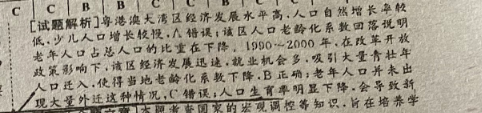 C C B B C C B C
[试题解析]粤港澳大湾区经济发展水平高,人口自然增长率较
低,少儿人口增长较慢,A错误;该区人口老龄化系数回落说明
老年人口占总人口的比重在下降。1990~2000年,在改革开放
政策影响下,该区经济发展迅速,就业机会多,吸引大量青壮年
人口迁入,使得当地老龄化系数下降,B正确;老年人口并未出
现大量外迁这种情况,C错误;人口生育率明显下降,会导致新
本题考查国家的宏观调控等知识,旨在培养学